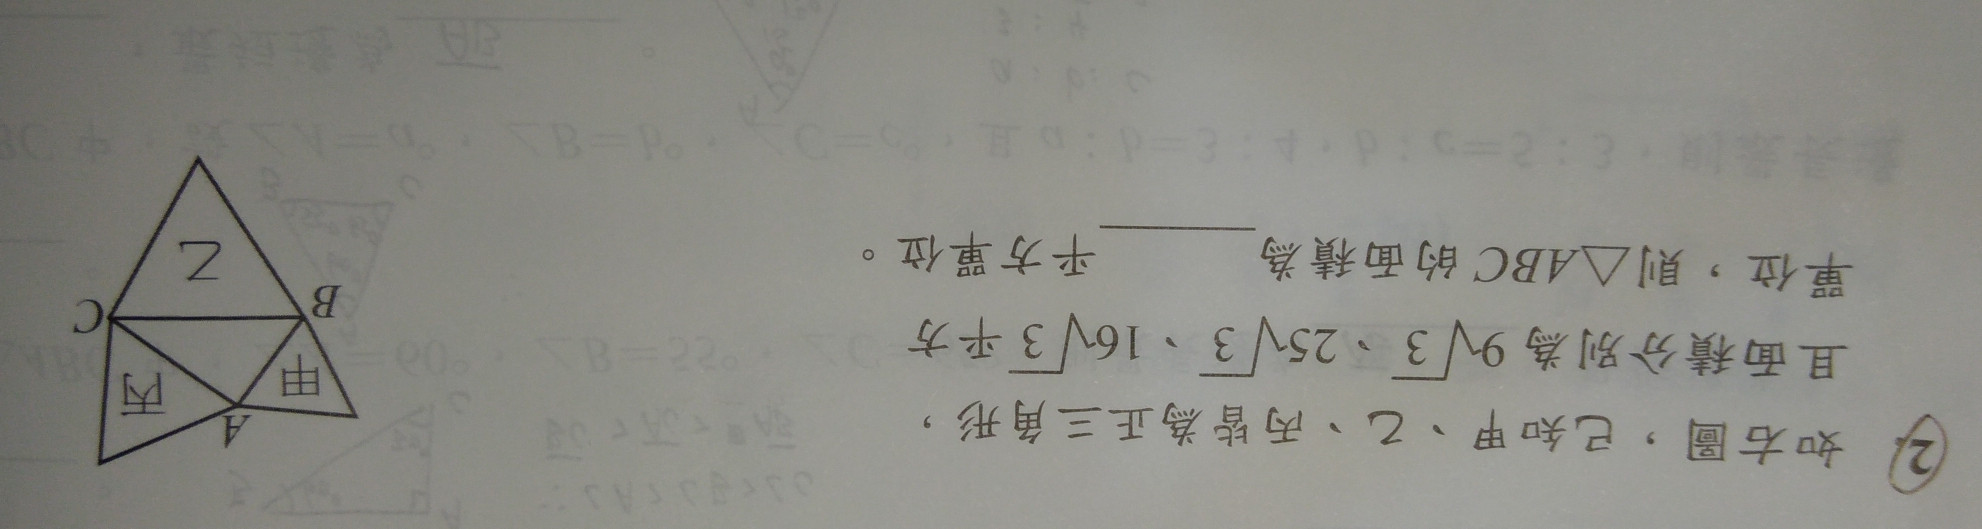 2. 如右圖，已知甲、乙、丙皆為正三角形，
且面積分別為 9√3、25√3、16√3 平方
單位，則△ABC 的面積為＿＿＿＿平方單位。
A
甲
丙
B
C
乙